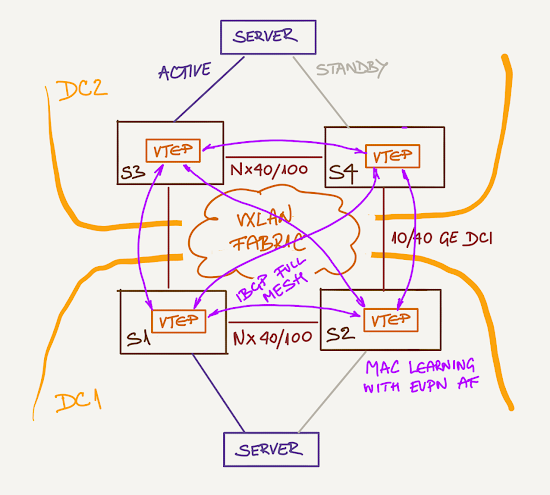 SERVER
ACTIVE
STANDBY
DC2
VTEP
S3
VTEP
S4
NX40/100
VXLAN
FABRIC
10/40 GE DCI
IBGP FULL
MESH
VTEP
S1
VTEP
S2
NX40/100
MAC LEARNING
WITH EVPN AF
DC1
SERVER